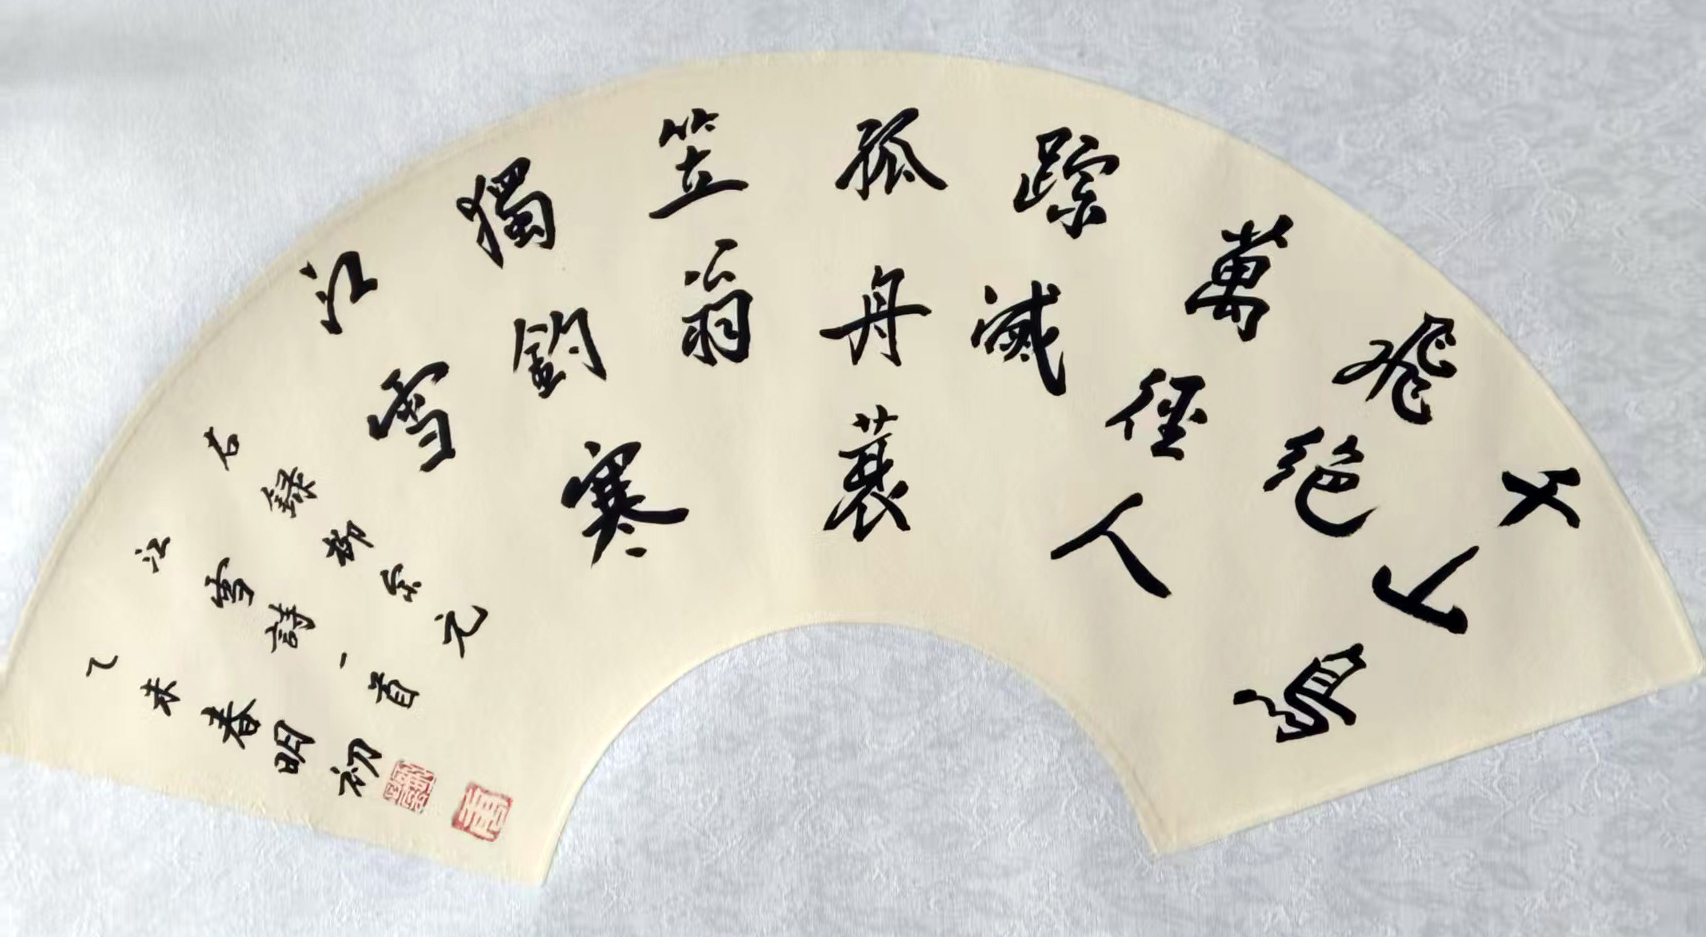 千山鳥
飛絶
萬徑人
踪滅
孤舟蓑
笠翁
獨釣寒
江雪
右録柳宗元
江雪詩一首
乙未春明初